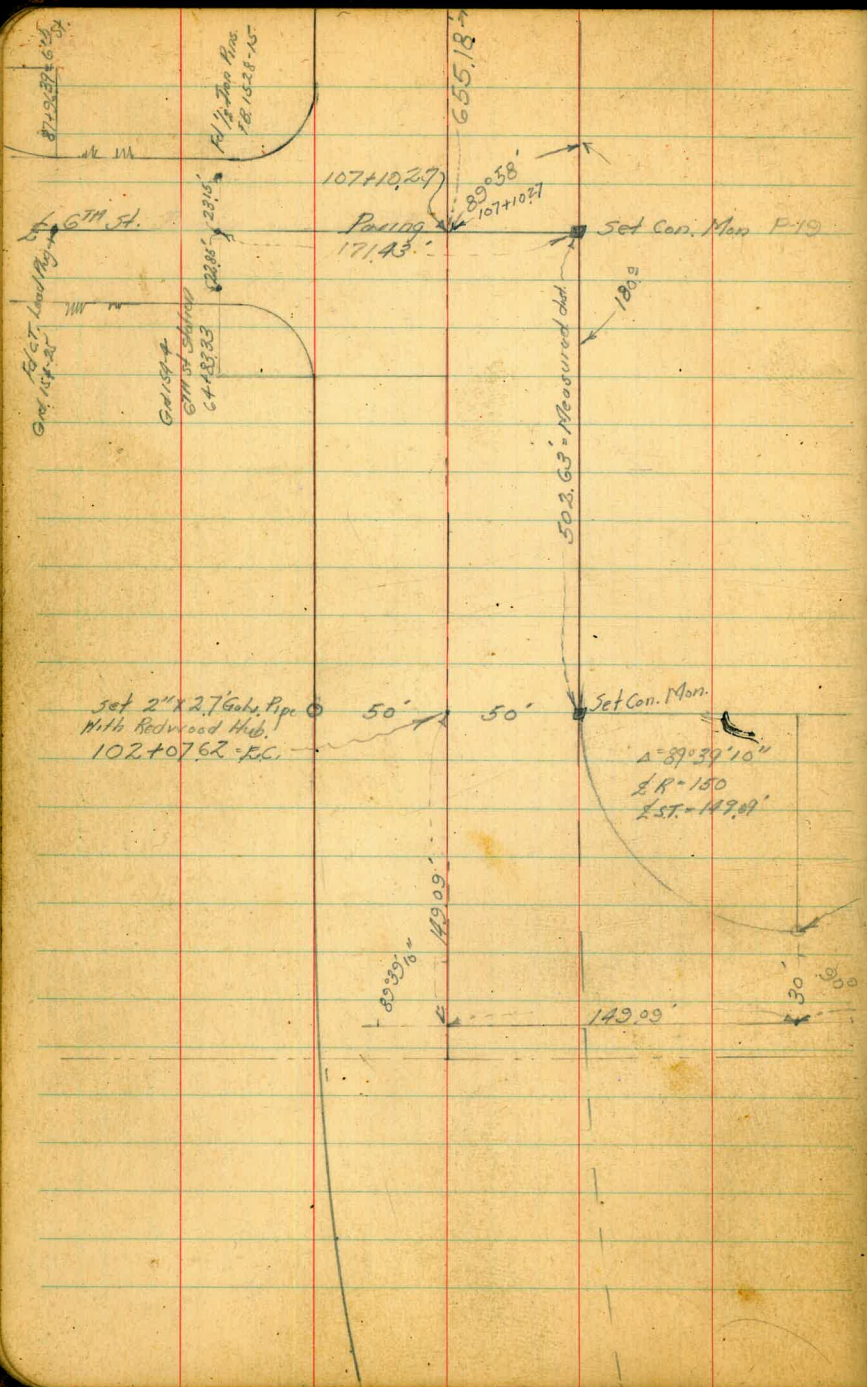 St.
Fd ½" Iron Pins.
F.B. 1528-15.
655.18'
107+10.27
89°58'
107+10.27
℄ 6TH St.
23.15'
22.85'
Paving
171.43'
Set Con. Mon P-19
180°
Fd G.T. Lead Plug
Grd 154-25
Grd 154-4
6TH St Station
64+83.33
502.63' = Measured dist.
Set 2" X 2.7' Galv. Pipe
With Redwood Hub.
102+07.62 = E.C.
50'
50'
Set Con. Mon.
Δ=89°39'10"
℄ R=150
℄ S.T.=149.09'
149.09'
89°39'10"
149.09'
30'